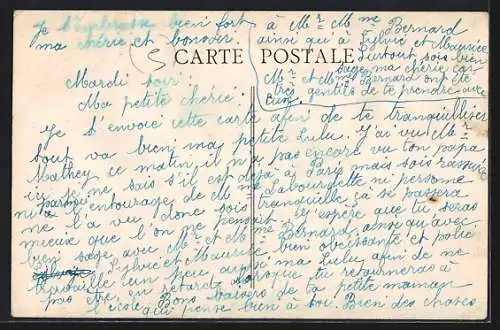 Je t'embrasse bien fort
ma chérie et bonsoir.
CARTE POSTALE
à Mr et Mme Bernard
ainsi qu'à Sylvie et Maurice
Surtout sois bien
sage ma chérie car
Mr et Mme Bernard ont été
très gentils de te prendre avec
eux.
Mardi soir.
Ma petite chérie.
Je t'envoie cette carte afin de te tranquilliser
tout va bien ma petite Lulu. J'ai vu Mr
Mathey ce matin, il n'a pas encore vu ton papa
je ne sais s'il est déjà à Paris mais sois rassurée
parmi l'entourage de Mr Labourdette ou personne
ne l'a vu donc sois tranquille ça se passera
mieux que l'on ne pensait. J'espère que tu seras
bien sage avec Mr et Mme Bernard, ainsi qu'avec
Sylvie et Maurice bien obéissante et polie
travaille un peu aussi ma Lulu, afin de ne
pas être en retard lorsque tu retourneras à
l'école. Bons baisers de ta petite maman
qui pense bien à toi. Bien des choses